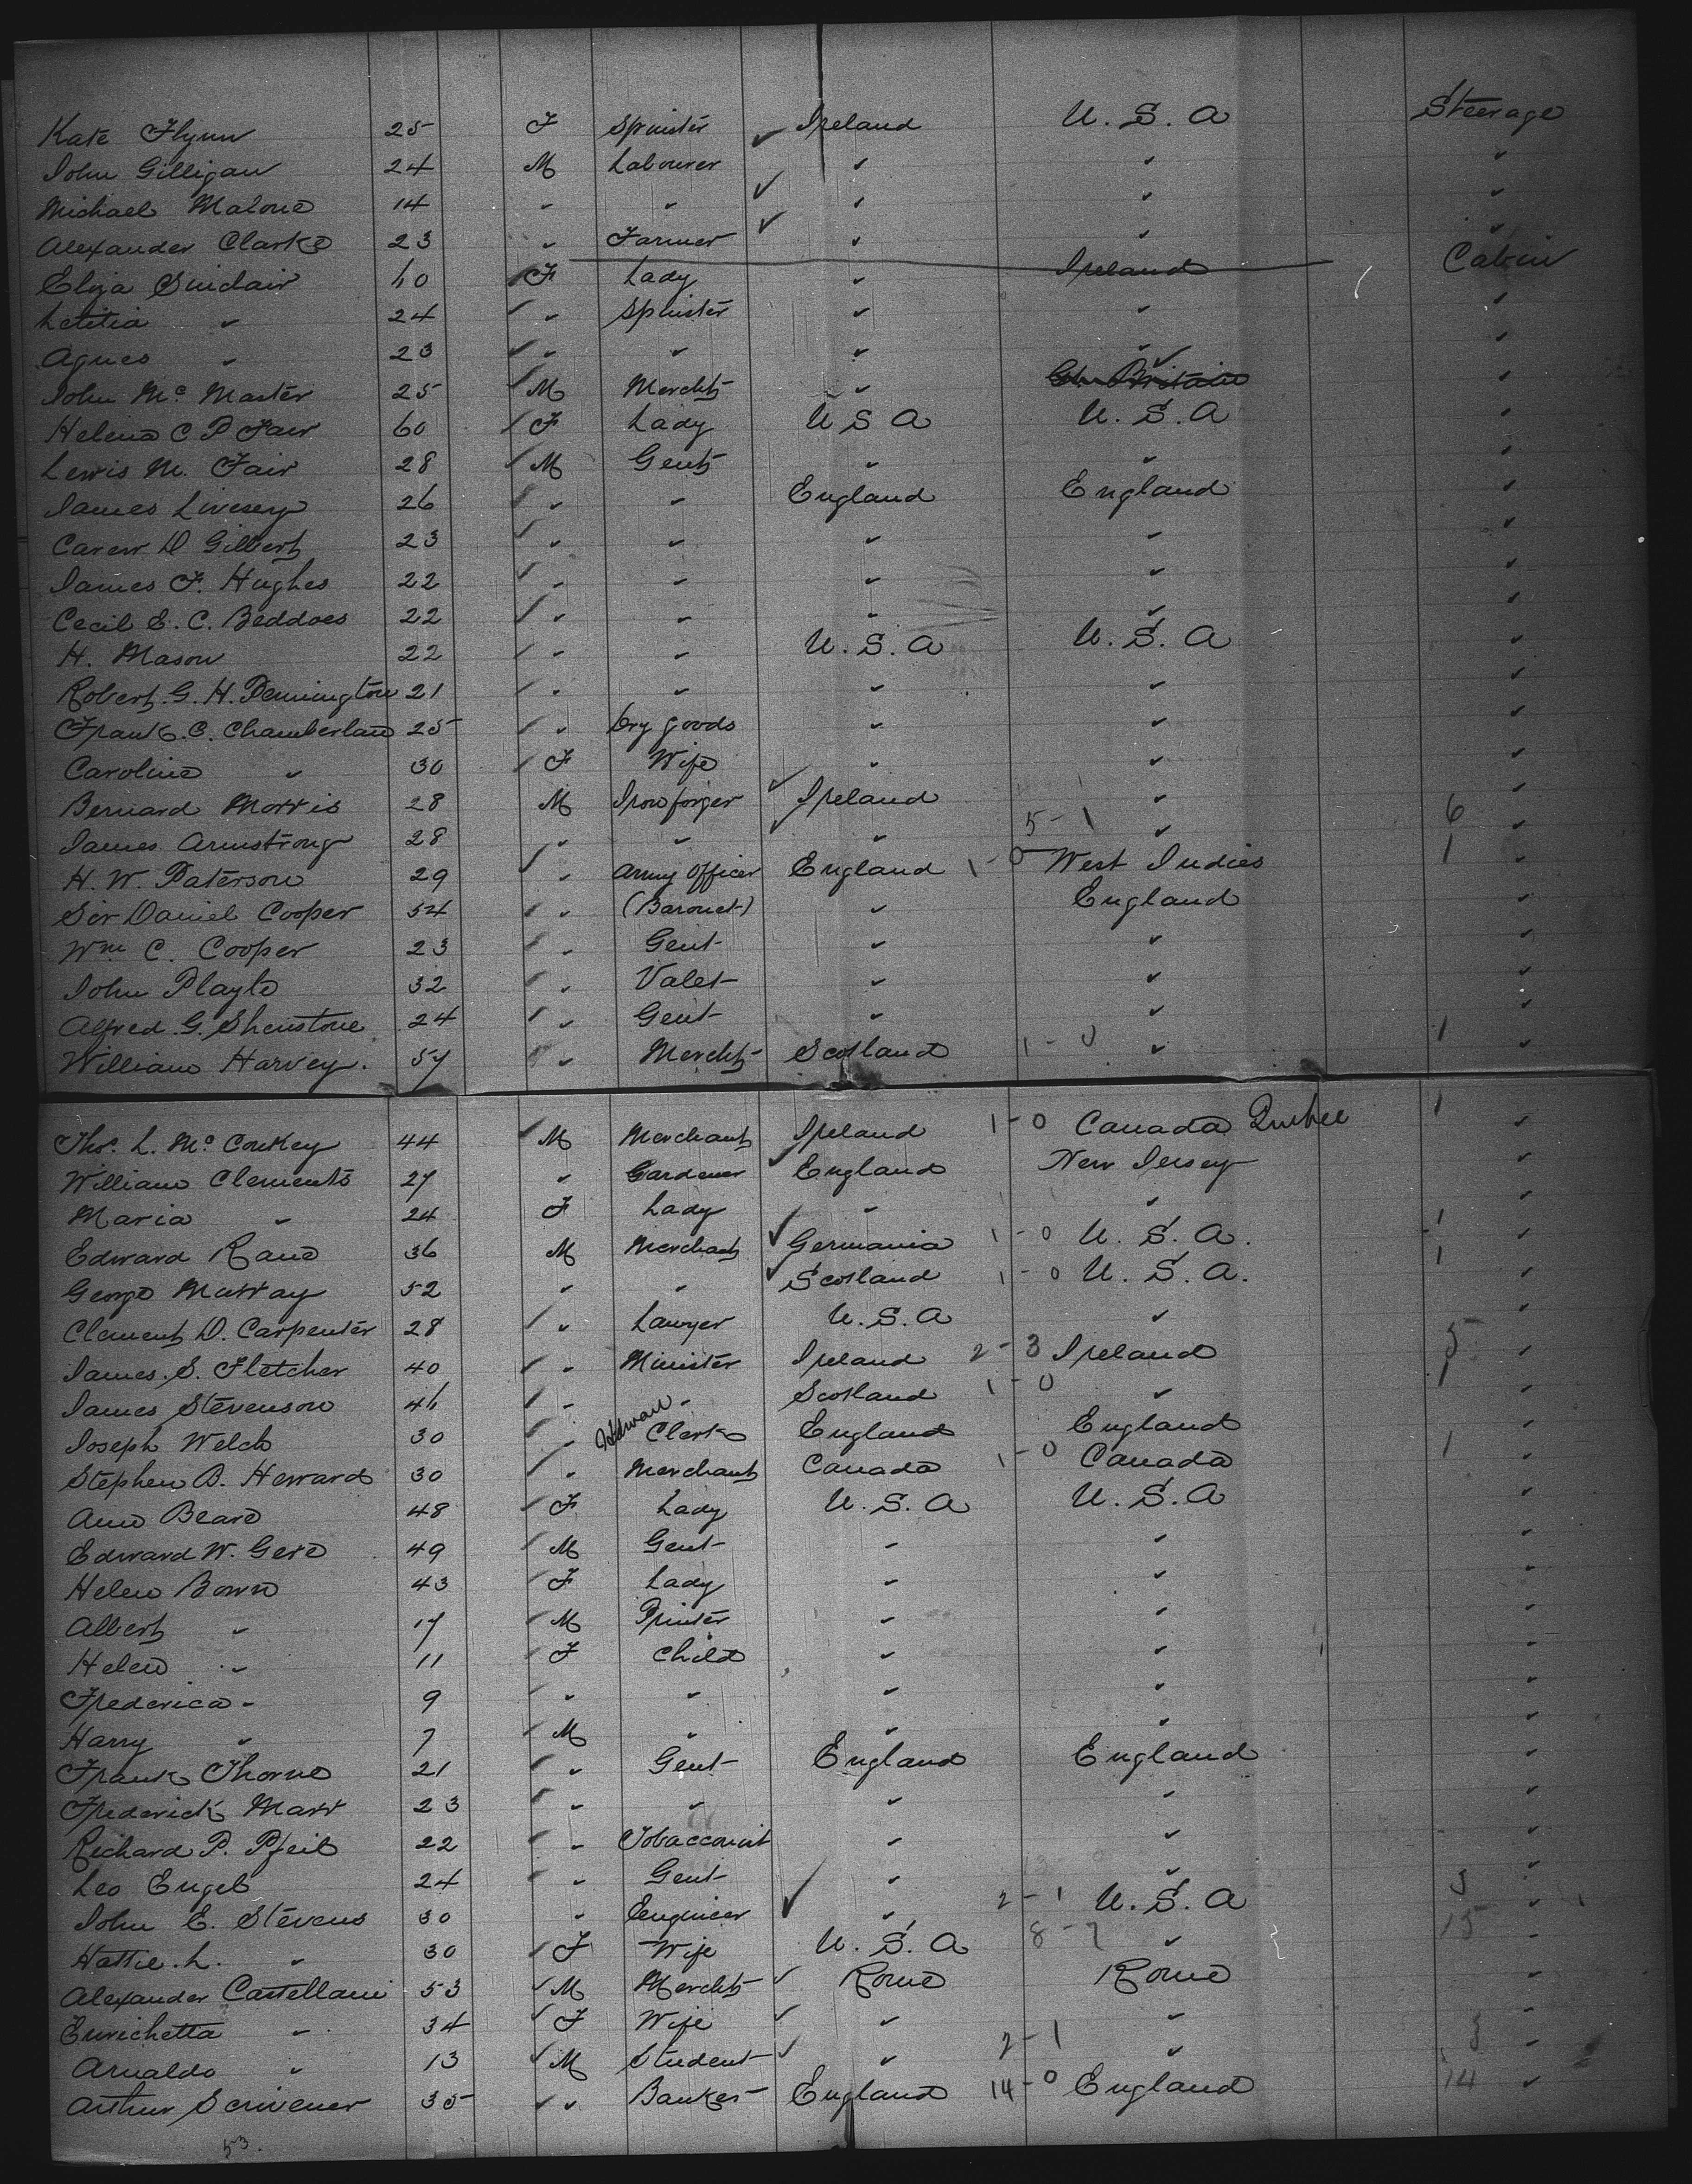 Kate Flynn 25 F Spinster ✓ Ireland U. S. A Steerage
John Gilligan 24 M Labourer " " "
Michael Malone 14 " " ✓ " " "
Alexander Clarke 23 " Farmer ✓ " " "
Eliza Sinclair 40 F Lady " Ireland Cabin
Letitia " 24 " Spinster " " "
Agnes " 23 " " " " "
John Mc Master 25 M Mercht " Gt Britain "
Helena C P Fair 60 F Lady U S A U. S. A "
Lewis M. Fair 28 M Gent " " "
James Livesey 26 " " England England "
Carew D Gilbert 23 " " " " "
James F. Hughes 22 " " " " "
Cecil E. C. Beddoes 22 " " " " "
H. Mason 22 " " U. S. A U. S. A "
Robert. G. H. Pennington 21 " " " " "
Frank. C. Chamberlain 25 " Dry goods " " "
Caroline " 30 F Wife " " "
Bernard Morris 28 M Iron forger ✓ Ireland " "
James Armstrong 28 " " ✓ " 5-1 " 6 "
H. W. Paterson 29 " Army Officer England 1-0 West Indies 1 "
Sir Daniel Cooper 54 " (Baronet) " England "
Wm C. Cooper 23 " Gent " " "
John Playle 32 " Valet " " "
Alfred G. Shenstone 24 " Gent " " "
William Harvey. 57 " Mercht Scotland 1-0 " 1 "
Thos. L. Mc Conkey 44 M Merchant Ireland 1-0 Canada Quebec 1 "
William Clements 27 " Gardener ✓ England New Jersey "
Maria " 24 F Lady " " "
Edward Rand 36 M Merchant ✓ Germania 1-0 U. S. A. 1 "
George Murray 52 " " ✓ Scotland 1-0 U. S. A. 1 "
Clement D. Carpenter 28 " Lawyer U. S. A " "
James. S. Fletcher 40 " Minister Ireland 2-3 Ireland 5 "
James Stevenson 46 " " Scotland 1-0 " 1 "
Joseph Welch 30 " Clerk England England "
Stephen B. Heward 30 " Merchant Canada 1-0 Canada 1 "
Ann Beard 48 F Lady U. S. A U. S. A "
Edward W. Gere 49 M Gent " " "
Helen Bown 43 F Lady " " "
Albert " 17 M Printer " " "
Helen " 11 F Child " " "
Frederica " 9 " " " " "
Harry " 7 M " " " "
Frank Thorne 21 " Gent England England "
Frederick Marr 23 " " " " "
Richard P. Pfeil 22 " Tobacconist " " "
Leo Engel 24 " Gent " " "
John E. Stevens 30 " Engineer ✓ " 2-1 U. S. A 3 "
Hattie. L. " 30 F Wife U. S. A 8-7 " 15 "
Alexander Castellani 53 M Mercht ✓ Rome Rome "
Enrichetta " 34 F Wife ✓ " " "
Arnaldo " 13 M Student ✓ " 2-1 " 3 "
Arthur Scrivener 35 " Banker England 14-0 England 14 "
53.